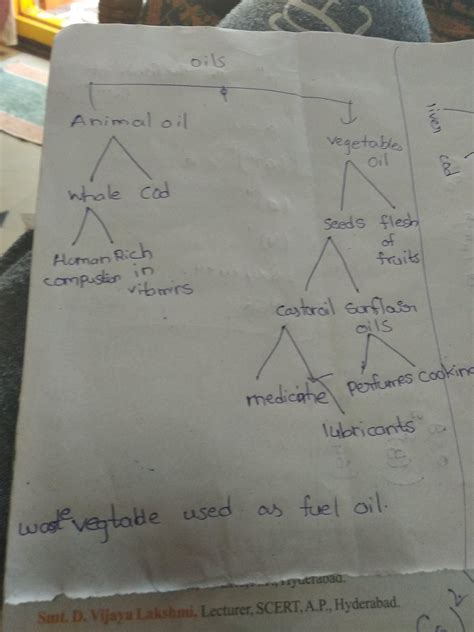 oils
Animal oil
vegetables
oil
whale cod
seeds flesh
of
fruits
Human Rich
compustion in
vitamirs
castoroil sunflair
oils
medicine perfumes cooking
lubricants
waste vegtable used as fuel oil.
Smt. D. Vijaya Lakshmi, Lecturer, SCERT, A.P., Hyderabad.
river